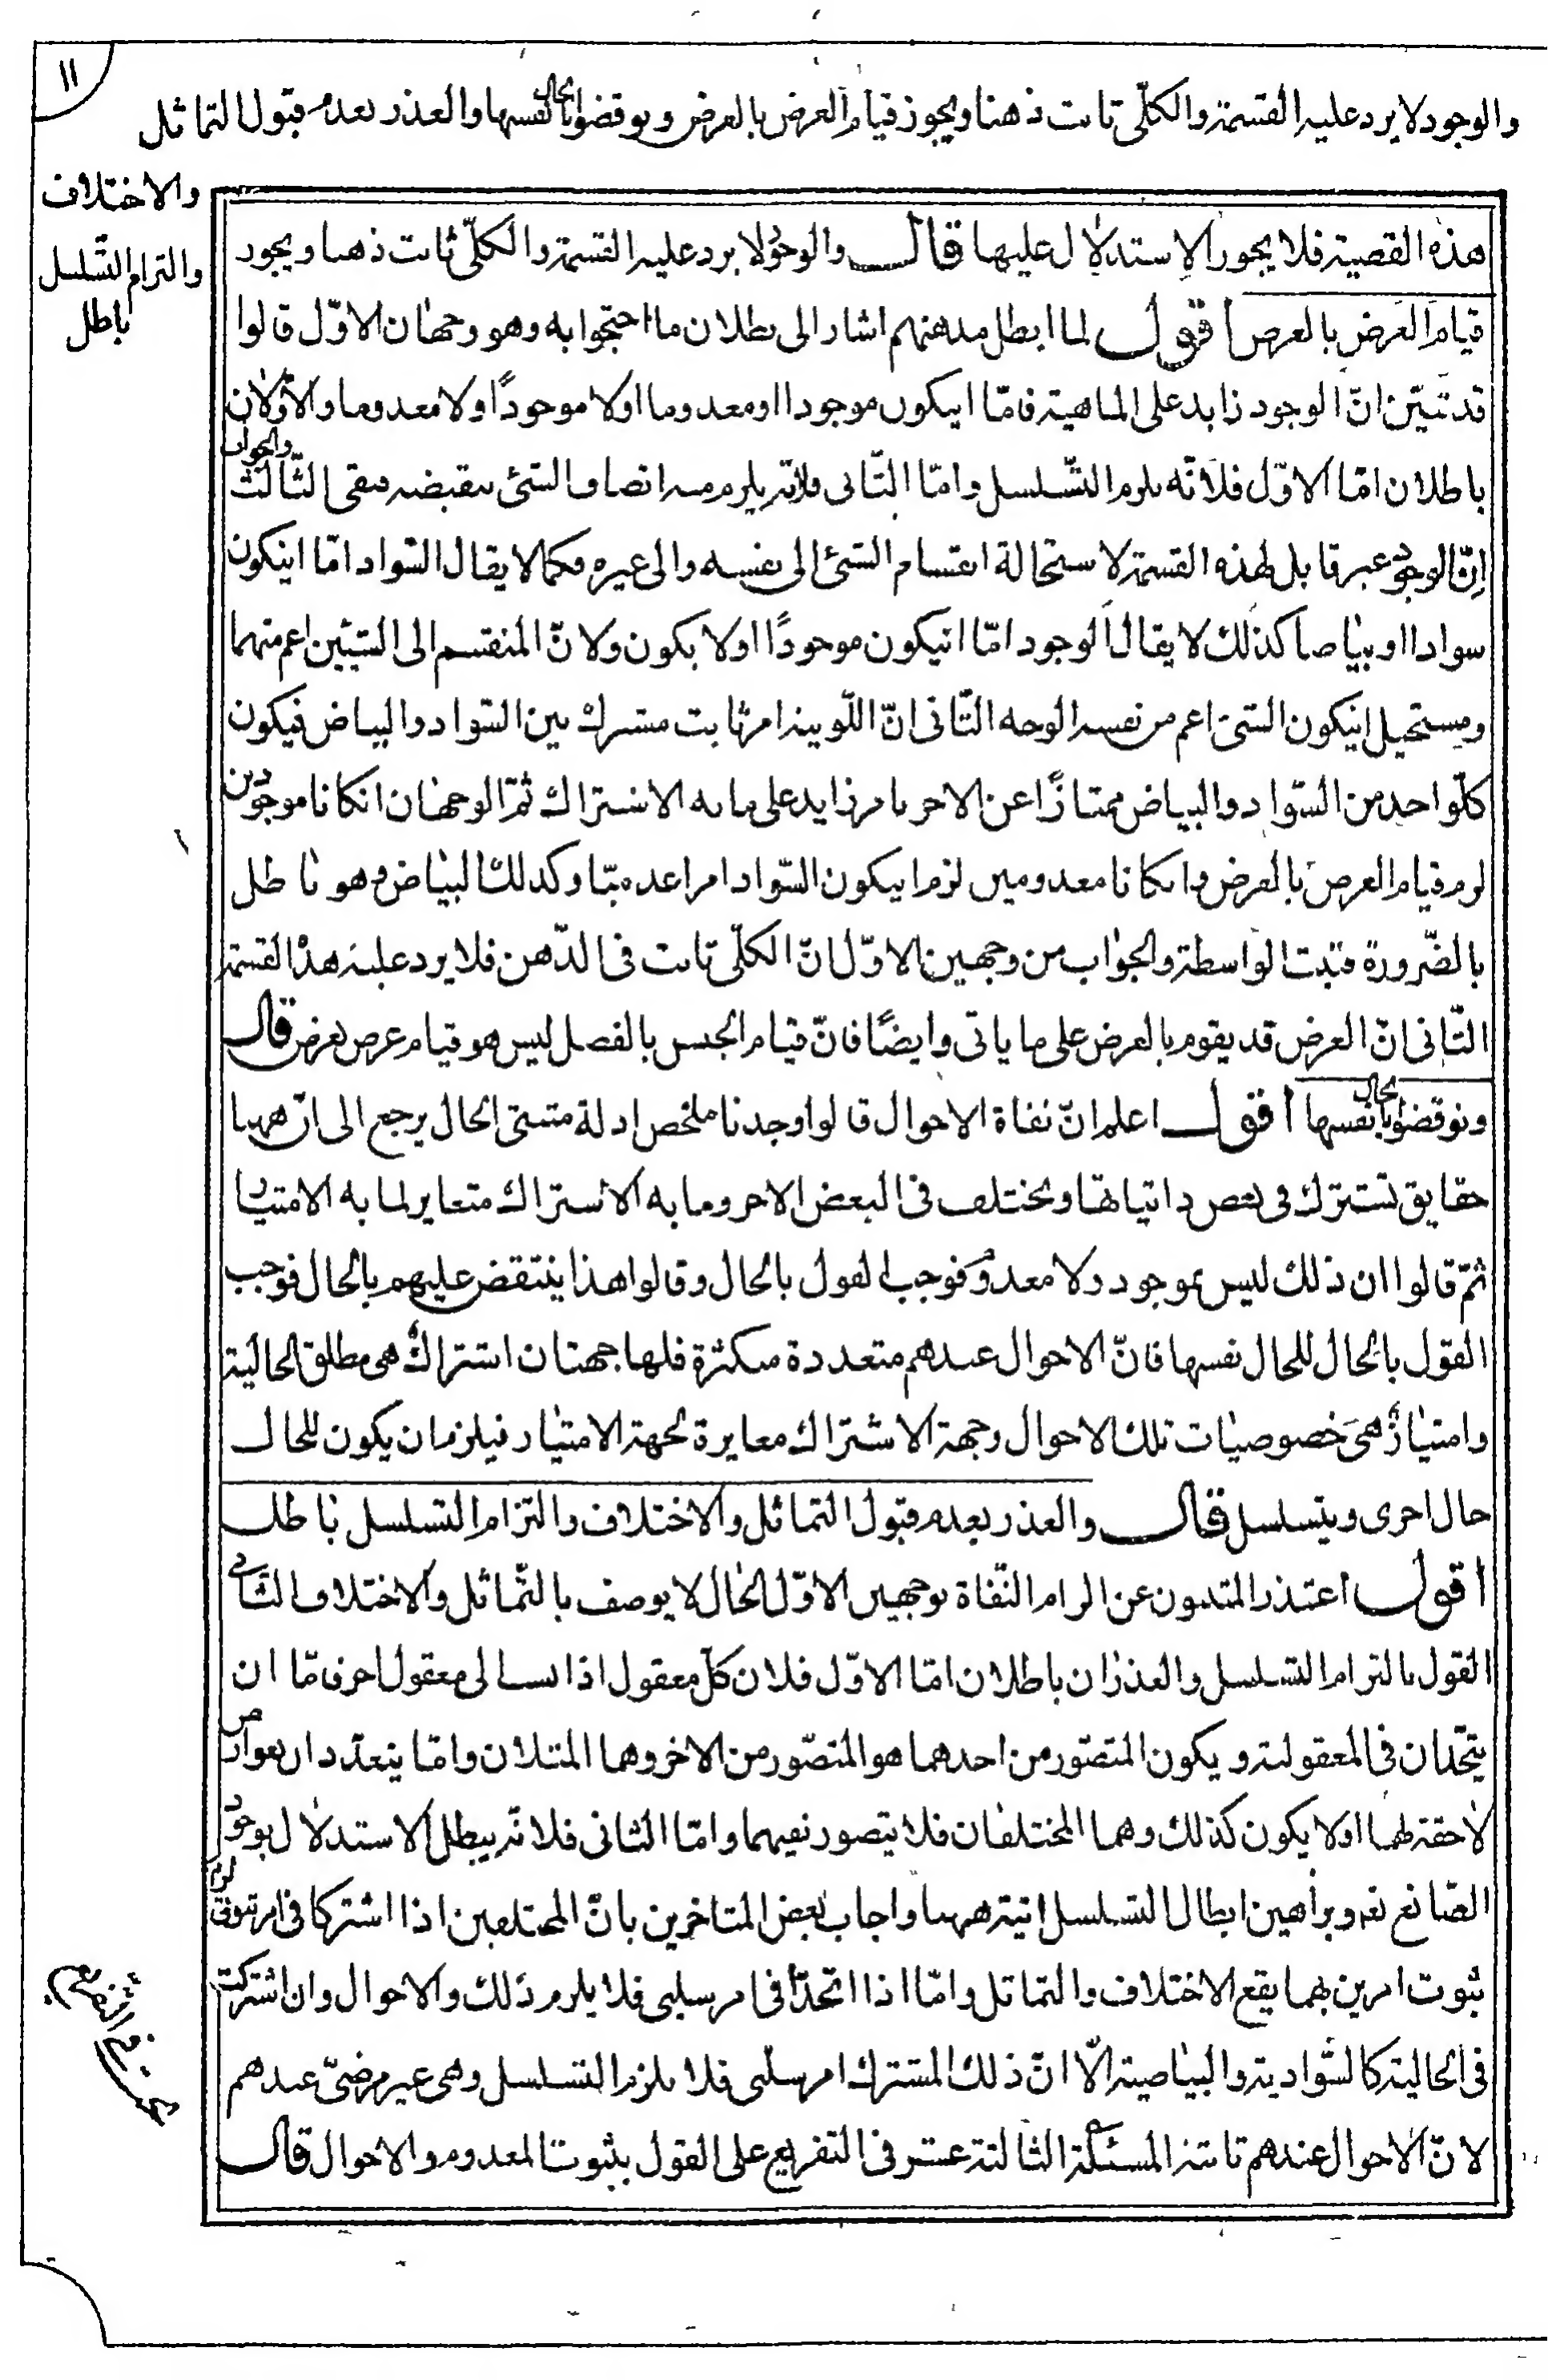 ١١
والوجود لا يرد عليه القسمة والكلّى ثابت ذهنا ويجوز قيام العرض بالعرض ونوقضوا بالحال نفسها والعذر بعدم قبول التماثل
والاختلاف
والتزام التّسلسل
باطل
هذه القضية فلا يجوز الاستدلال عليها قال والوجود لا يرد عليه القسمة والكلّى ثابت ذهنا ويجوز
قيام العرض بالعرض اقول لما ابطل مذهبهم اشار الى بطلان ما احتجوا به وهو وجهان الاوّل قالوا
قد تبيّن انّ الوجود زايد على الماهية فامّا ايكون موجودا او معدوما او لا موجودًا ولا معدوما والاوّلان
باطلان امّا الاوّل فلانّه يلزم التّسلسل وامّا الثّانى فلانّه يلزم منه اتصاف الشئ بنقيضه فبقى الثّالث والجواب
انّ الوجود غير قابل لهذه القسمة لاستحالة انقسام الشئ الى نفسه والى غيره فكما لا يقال السّواد امّا انيكون
سوادا او بياضا كذلك لا يقال الوجود امّا انيكون موجودًا او لا يكون ولانّ المنقسم الى الشيئين اعم منهما
ويستحيل انيكون الشئ اعم من نفسه الوجه الثّانى انّ اللّونية امر ثابت مشترك بين السّواد والبياض فيكون
كلّ واحد من السّواد والبياض ممتازًا عن الاخر بامر زايد على ما به الاشتراك ثمّ الوجهان انكانا موجودين
لزم قيام العرض بالعرض وانكانا معدومين لزم ايكون السّواد امرا عدميّا وكذلك البياض وهو باطل
بالضّرورة فثبت الواسطة والجواب من وجهين الاوّل انّ الكلّى ثابت فى الذّهن فلا يرد عليه هذه القسمة
الثّانى انّ العرض قد يقوم بالعرض على ما ياتى وايضًا فانّ قيام الجنس بالفصل ليس هو قيام عرض بعرض قال
ونوقضوا بالحال نفسها اقول اعلم انّ نفاة الاحوال قالوا وجدنا ملخص ادلة مثبتى الحال يرجع الى انّ ههنا
حقايق تشترك فى بعض ذاتياتها وتختلف فى البعض الاخر وما به الاشتراك متغاير لما به الامتياز
ثمّ قالوا ان ذلك ليس بموجود ولا معدوم فوجب القول بالحال وقالوا هذا ينتقض عليهم بالحال فوجب
القول بالحال للحال نفسها فانّ الاحوال عندهم متعددة متكثرة فلها جهتان اشتراك هى مطلق الحالية
وامتياز هى خصوصيات تلك الاحوال وجهة الاشتراك مغايرة لجهة الامتياز فيلزم ان يكون للحال
حال اخرى ويتسلسل قال والعذر بعدم قبول التماثل والاختلاف والتزام التسلسل باطل
اقول اعتذر المثبتون عن الزام النّفاة بوجهين الاوّل الحال لا يوصف بالتّماثل والاختلاف الثّانى
القول بالتزام التسلسل والعذران باطلان امّا الاوّل فلان كلّ معقول اذا نسب الى معقول اخر فامّا ان
يتّحدان فى المعقولية ويكون المتصّور من احدهما هو المتصّور من الاخر وهما المثلان وامّا يتعدّدان بعوارض
لاحقة لهما اولا يكون كذلك وهما المختلفان فلا يتصور نفيهما وامّا الثانى فلانّه يبطل الاستدلال بوجود
الصّانع تعم وبراهين ابطال التسلسل اتية ههنا واجاب بعض المتاخرين بانّ المختلفين اذا اشتركا فى امر ثبوتى لزم
ثبوت امرين بهما يقع الاختلاف والتماثل وامّا اذا اتّحدّا فى امر سلبى فلا يلزم ذلك والاحوال وان اشتركت
فى الحالية كالسّوادية والبياضية الّا انّ ذلك المشترك امر سلبى فلا يلزم التسلسل وهى غير مرضىّ عندهم
لانّ الاحوال عندهم ثابتة المسئلة الثالثة عشر فى التفريع على القول بثبوت المعدوم والاحوال قال